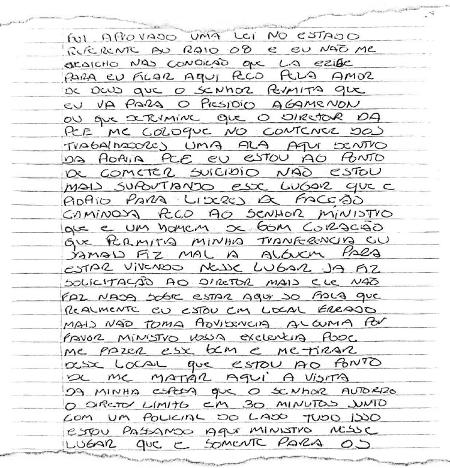 FUI APROVADO UMA LEI NO ESTADO
REFERENTE AO RAIO 08 E EU NÃO ME
NAS CONDIÇÃO QUE LA EXIGE
PARA EU FICAR AQUI PEÇO PELA AMOR
DE DEUS QUE O SENHOR PERMITA QUE
EU VA PARA O PRESIDIO AGAMENON
OU QUE DETERMINE QUE O DIRETOR DA
PCE ME COLOQUE NO CONTENER DOS
TRABALHADORES UMA ALA AQUI DENTRO
DA PCE EU ESTOU AO PONTO
DE COMETER SUICIDIO NÃO ESTOU
MAIS SUPORTANDO ESSE LUGAR QUE E
PARA LIDERES DE FACÇÃO
CIMINOSA PEÇO AO SENHOR MINISTRO
QUE E UM HOMEM DE BOM CORAÇÃO
QUE PERMITIA MINHA TRANFERENCIA EU
JAMAIS FIZ MAL A ALGUEM PARA
ESTAR VIVENDO NESSE LUGAR JA FIZ
SOLICITAÇÃO AO DIRETOR MAIS ELE NÃO
FAZ NADA SOBRE ESTAR AQUI SO FALA QUE
REALMENTE EU ESTOU EM LOCAL ERRADO
MAIS NÃO TOMA PROVIDENCIA ALGUMA POR
FAVOR MINISTRO VOSSA EXELENCIA PODE
ME FAZER ESSE BEM E ME TIRAR
DESSE LOCAL QUE ESTOU AO PONTO
DE ME MATAR AQUI A VISITA
DA MINHA ESPOSA QUE O SENHOR AUTORIZO
O DIRETOR LIMITO EM 30 MINUTOS JUNTO
COM UM POLICIAL DO LADO TUDO ISSO
ESTOU PASSANDO AQUI MINISTRO NESSE
LUGAR QUE E SOMENTE PARA OS